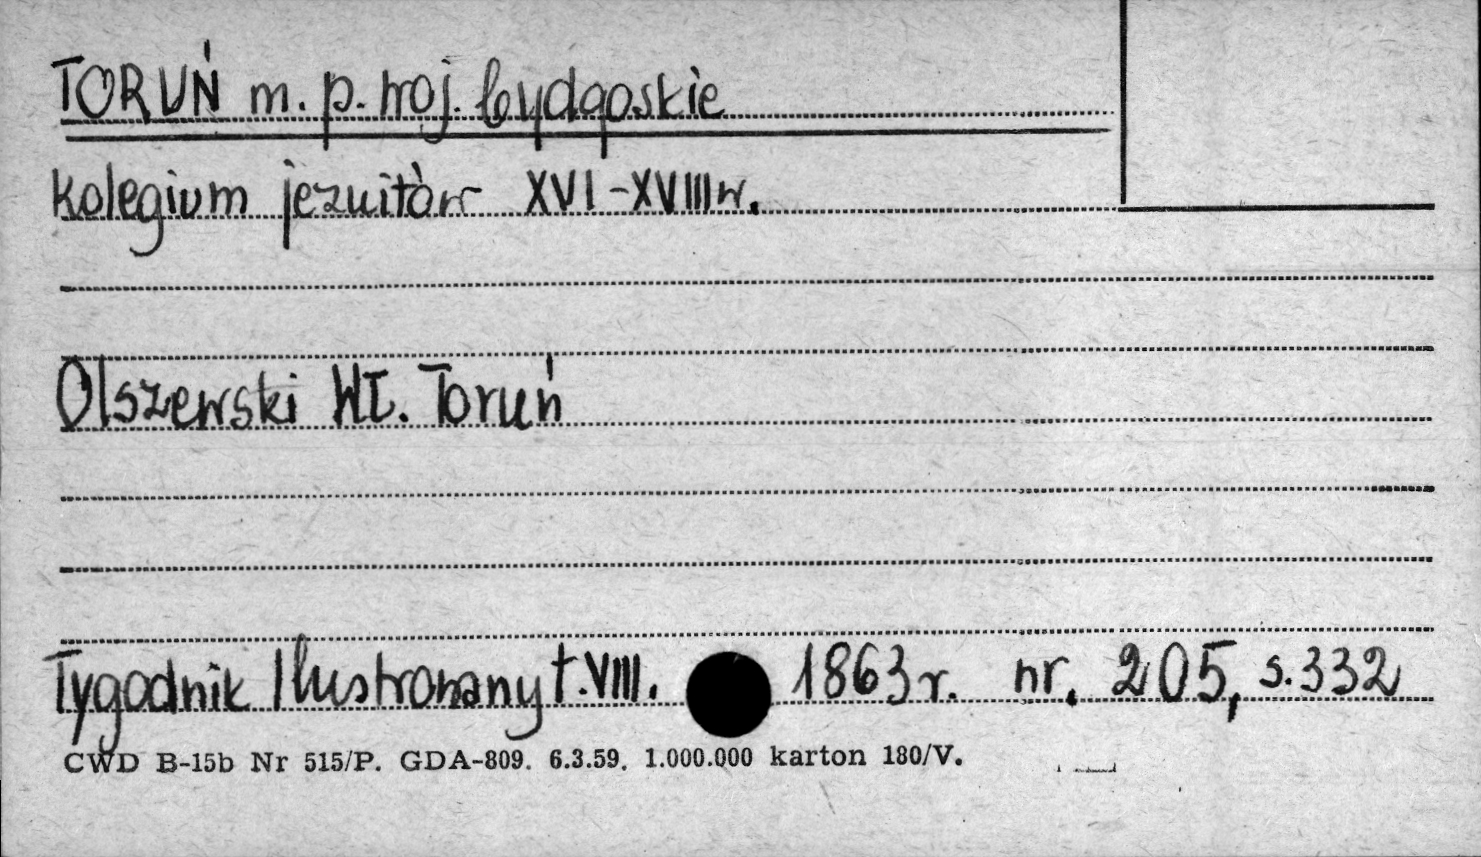 TORUŃ m. p. woj. bydgoskie
Kolegium jezuitów XVI-XVIII w.
Olszewski Wł. Toruń
Tygodnik Ilustrowany t. VIII. 1863 r. nr. 205, s. 332
CWD B-15b Nr 515/P. GDA-809. 6.3.59. 1.000.000 karton 180/V.